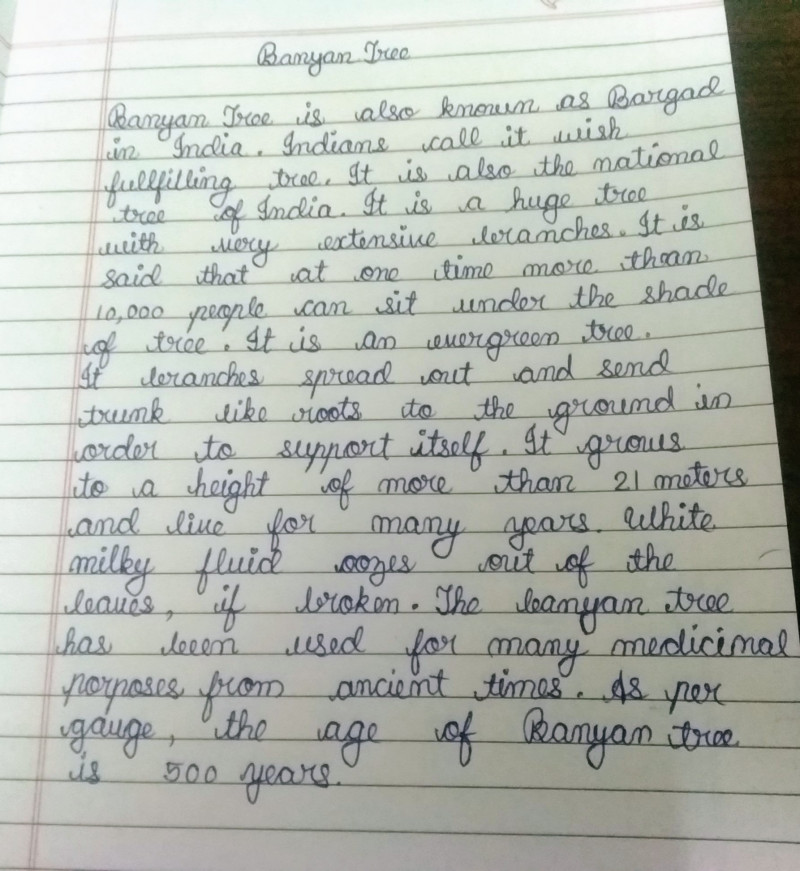 Banyan Tree
Banyan Tree is also known as Bargad
in India. Indians call it wish
fullfilling tree. It is also the national
tree of India. It is a huge tree
with very extensive branches. It is
said that at one time more than
10,000 people can sit under the shade
of tree. It is an evergreen tree.
It branches spread out and send
trunk like roots to the ground in
order to support itself. It grows
to a height of more than 21 meters
and live for many years. White
milky fluid oozes out of the
leaves, if broken. The banyan tree
has been used for many medicimal
porposes from ancient times. As per
gauge, the age of Banyan tree
is 500 years.